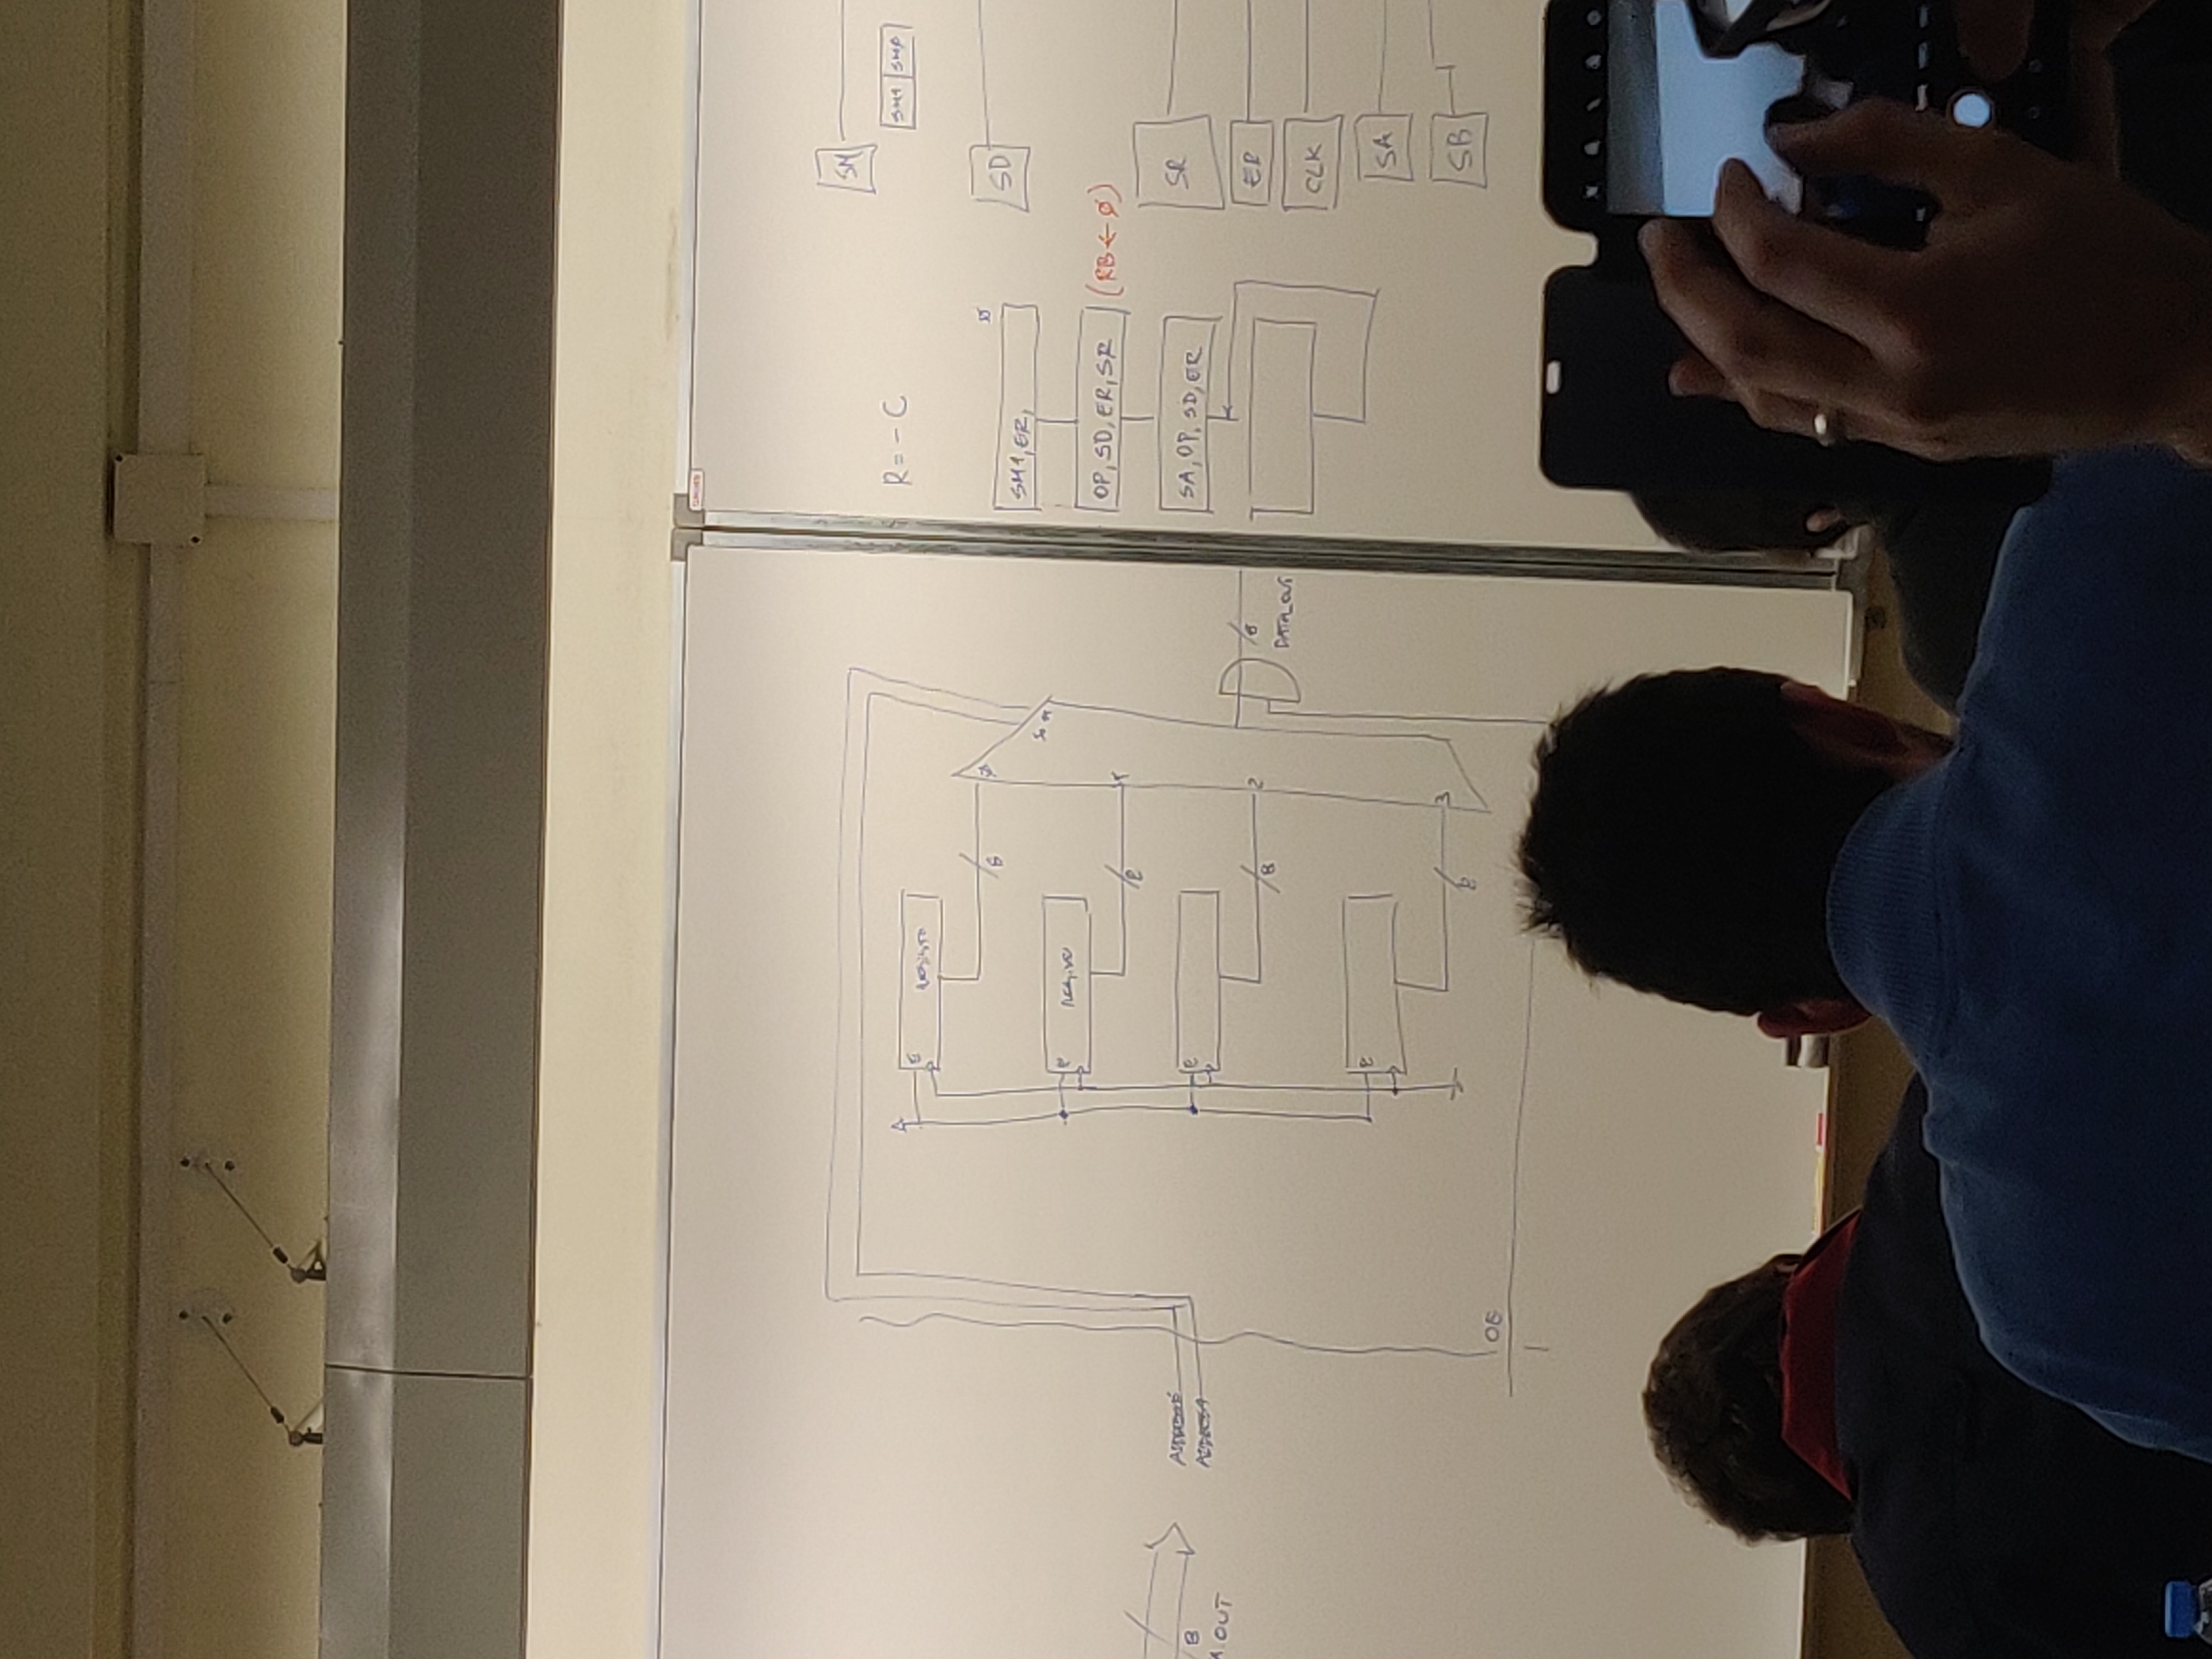 B
A.OUT
ADDRESS0
ADDRESS1
OE
E
REGISTO
8
Ø
S0 S1
E
REGISTO
8
1
E
8
2
E
8
3
8
DATA_OUT
R = - C
Ø
SM1, ER,
OP, SD, ER, SR (RB ← Ø)
SA, OP, SD, ER
SM
SM1 SMØ
SD
SR
ER
CLK
SA
SB